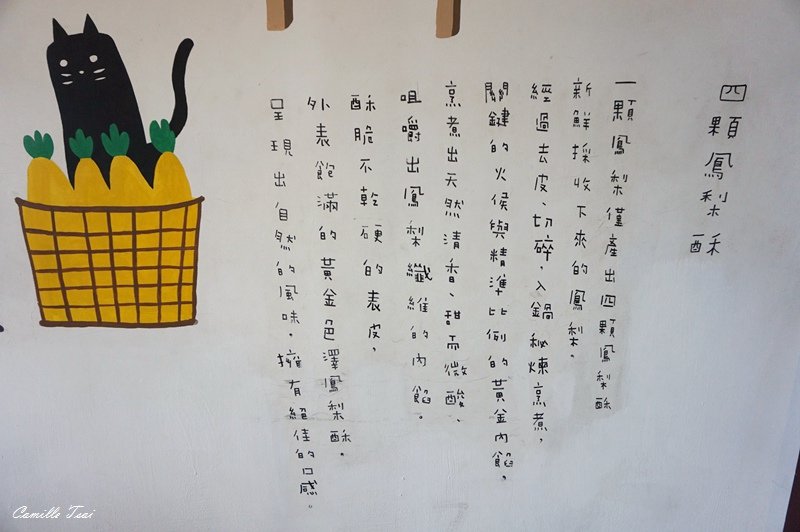 四顆鳳梨酥
一顆鳳梨僅產出四顆鳳梨酥
新鮮採收下來的鳳梨。
經過去皮、切碎，入鍋秘煉烹煮，
關鍵的火侯與精準比例的黃金內餡。
烹煮出天然清香、甜而微酸、
咀嚼出鳳梨纖維的內餡。
酥脆不乾硬的表皮，
外表飽滿的黃金色澤鳳梨酥。
呈現出自然的風味。擁有絕佳的口感。
Camille Tsai